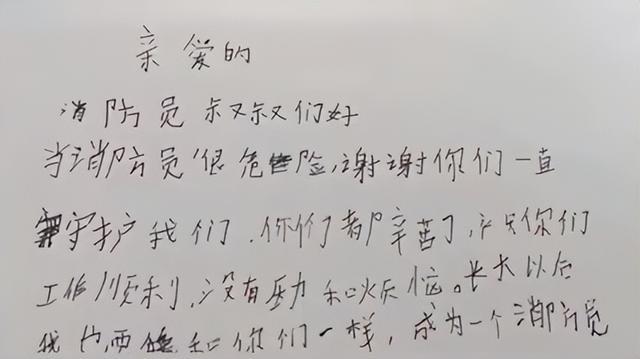 亲爱的
消防员叔叔们好
当消防员很危险,谢谢你们一直
守护我们.你们都辛苦了,祝你们
工作顺利,没有 和烦恼。长大以后
我也要 和你们一样,成为一个消防员